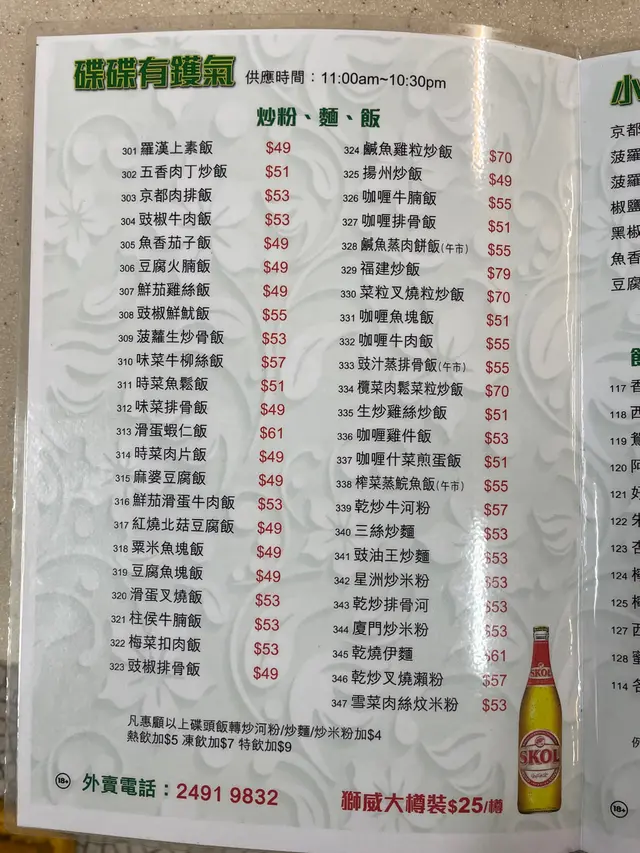 碟碟有鑊氣 供應時間：11:00am~10:30pm
炒粉、麵、飯
301 羅漢上素飯 $49
302 五香肉丁炒飯 $51
303 京都肉排飯 $53
304 豉椒牛肉飯 $53
305 魚香茄子飯 $49
306 豆腐火腩飯 $49
307 鮮茄雞絲飯 $49
308 豉椒鮮魷飯 $55
309 菠蘿生炒骨飯 $53
310 味菜牛柳絲飯 $57
311 時菜魚鬆飯 $51
312 味菜排骨飯 $49
313 滑蛋蝦仁飯 $61
314 時菜肉片飯 $49
315 麻婆豆腐飯 $49
316 鮮茄滑蛋牛肉飯 $53
317 紅燒北菇豆腐飯 $49
318 粟米魚塊飯 $49
319 豆腐魚塊飯 $49
320 滑蛋叉燒飯 $53
321 柱侯牛腩飯 $53
322 梅菜扣肉飯 $53
323 豉椒排骨飯 $49
324 鹹魚雞粒炒飯 $70
325 揚州炒飯 $49
326 咖喱牛腩飯 $55
327 咖喱排骨飯 $51
328 鹹魚蒸肉餅飯(午市) $55
329 福建炒飯 $79
330 菜粒叉燒粒炒飯 $70
331 咖喱魚塊飯 $51
332 咖喱牛肉飯 $55
333 豉汁蒸排骨飯(午市) $55
334 欖菜肉鬆菜粒炒飯 $70
335 生炒雞絲炒飯 $51
336 咖喱雞件飯 $53
337 咖喱什菜煎蛋飯 $51
338 榨菜蒸鯇魚飯(午市) $55
339 乾炒牛河粉 $57
340 三絲炒麵 $53
341 豉油王炒麵 $53
342 星洲炒米粉 $53
343 乾炒排骨河 $53
344 廈門炒米粉 $53
345 乾燒伊麵 $61
346 乾炒叉燒瀨粉 $57
347 雪菜肉絲炆米粉 $53
凡惠顧以上碟頭飯轉炒河粉/炒麵/炒米粉加$4
熱飲加$5 凍飲加$7 特飲加$9
18+ 外賣電話：2491 9832
獅威大樽裝$25/樽
SKOL
SKOL
小
京都
菠蘿
菠蘿
椒鹽
黑椒
魚香
豆腐
117 香
118 西
119
120
121 好
122
123 杏
124
125
127 西
128
114
18+